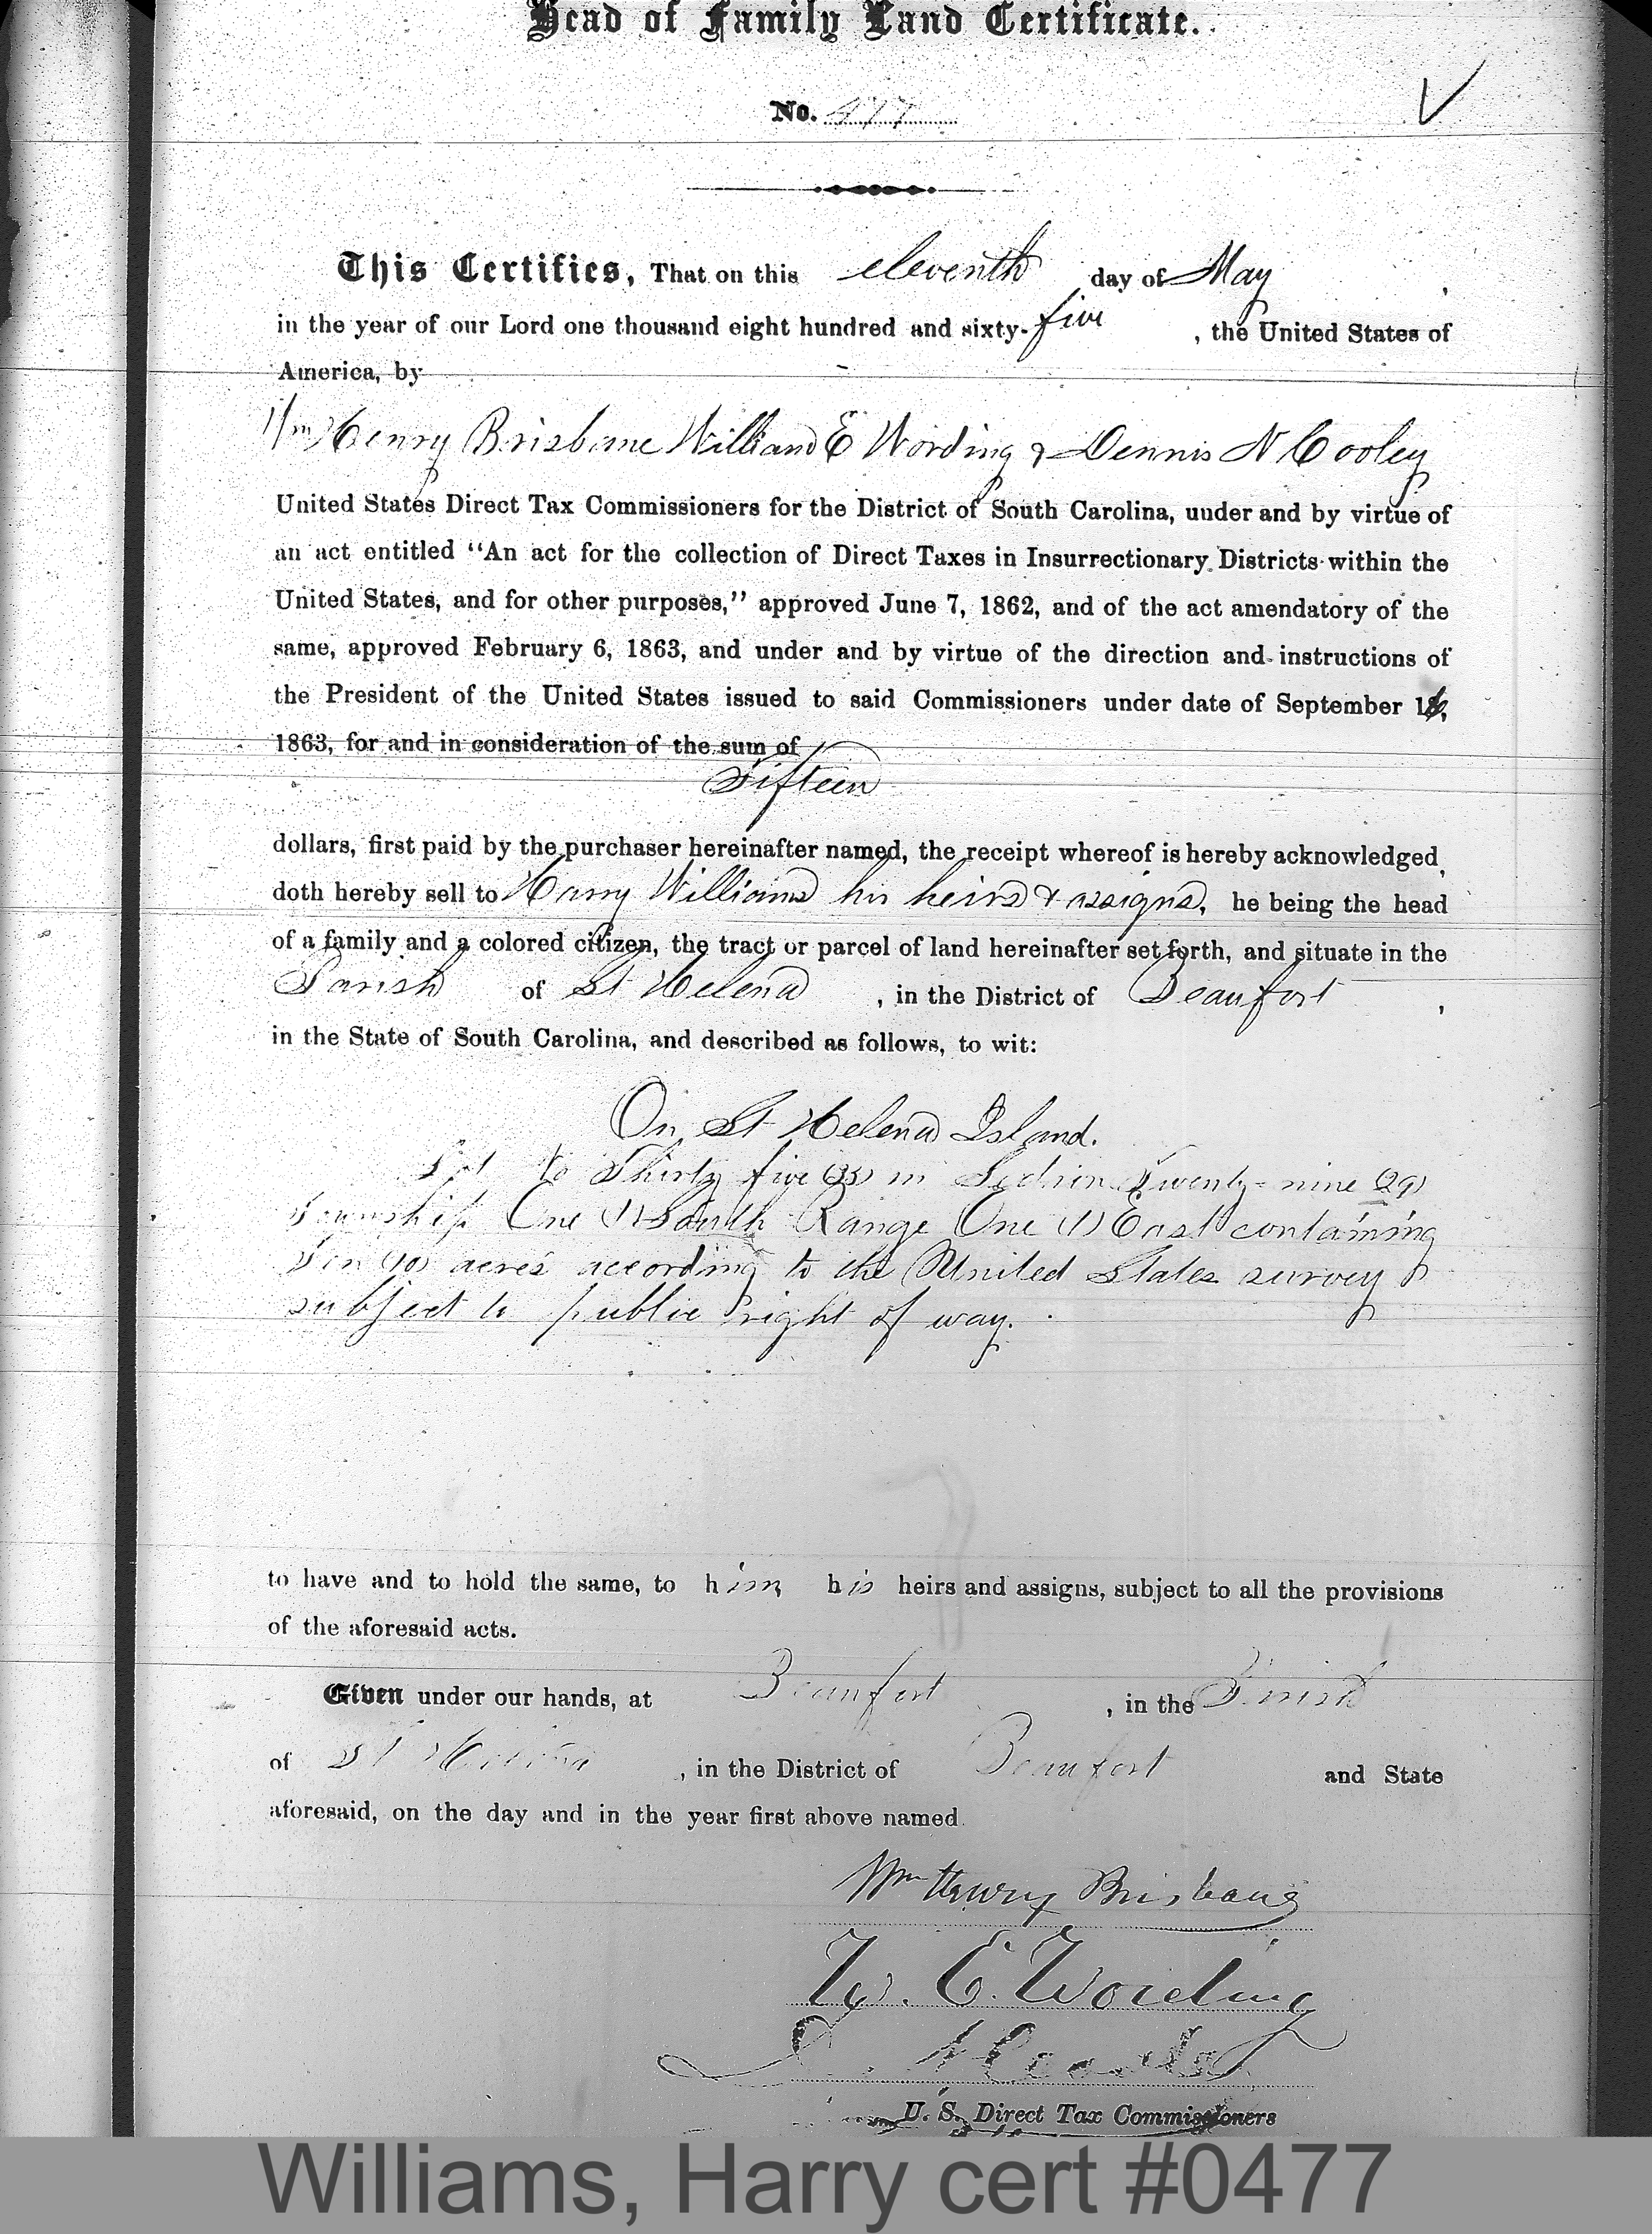 Head of Family Land Certificate.
No. 477
This Certifies, That on this eleventh day of May
in the year of our Lord one thousand eight hundred and sixty-five, the United States of
America, by
Wm Henry Brisbane William E Wording & Dennis N Cooley
United States Direct Tax Commissioners for the District of South Carolina, under and by virtue of
an act entitled "An act for the collection of Direct Taxes in Insurrectionary Districts within the
United States, and for other purposes," approved June 7, 1862, and of the act amendatory of the
same, approved February 6, 1863, and under and by virtue of the direction and instructions of
the President of the United States issued to said Commissioners under date of September 16,
1863, for and in consideration of the sum of
Fifteen
dollars, first paid by the purchaser hereinafter named, the receipt whereof is hereby acknowledged,
doth hereby sell to Harry Williams his heirs & assigns, he being the head
of a family and a colored citizen, the tract or parcel of land hereinafter set forth, and situate in the
Parish of St Helena, in the District of Beaufort,
in the State of South Carolina, and described as follows, to wit:
On St Helena Island.
Lot No Thirty five (35) in Section Twenty-nine (29)
Township One (1) South Range One (1) East containing
Ten (10) acres according to the United States survey
subject to public right of way.
to have and to hold the same, to him his heirs and assigns, subject to all the provisions
of the aforesaid acts.
Given under our hands, at Beaufort, in the Parish
of St Helena, in the District of Beaufort and State
aforesaid, on the day and in the year first above named.
Wm Henry Brisbane
W. E. Wording
D. N. Cooley
U. S. Direct Tax Commissioners
Williams, Harry cert #0477